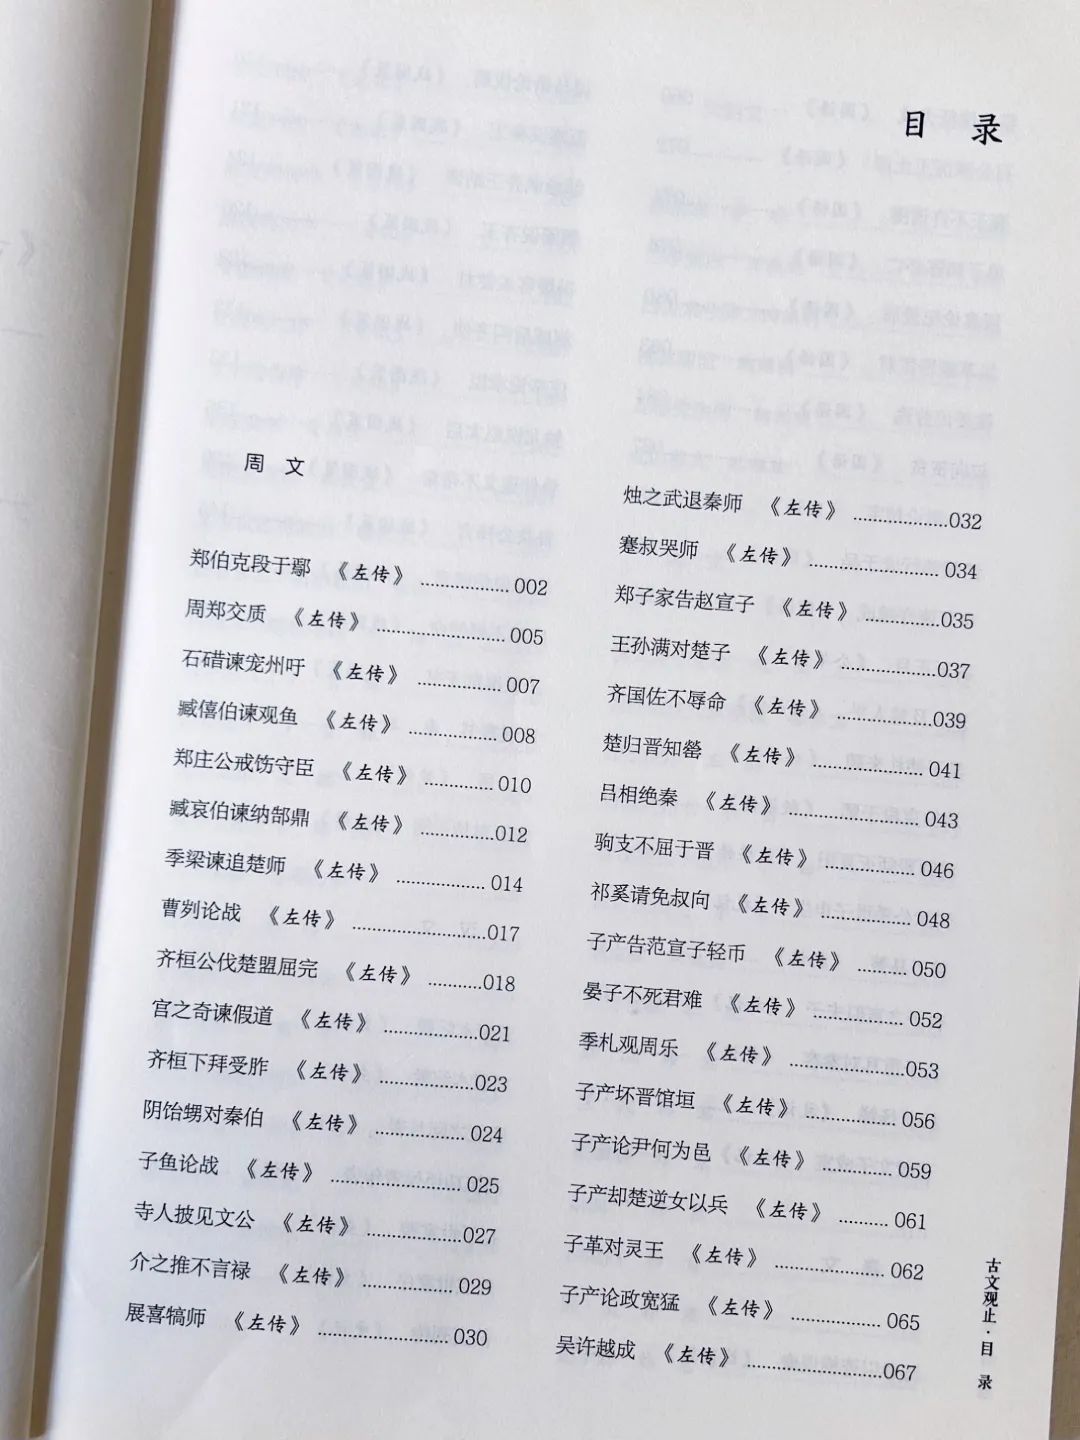 目 录
周 文
郑伯克段于鄢 《左传》 ..................002
周郑交质 《左传》 ..........................005
石碏谏宠州吁 《左传》 .................007
臧僖伯谏观鱼 《左传》 ..................008
郑庄公戒饬守臣 《左传》 ..............010
臧哀伯谏纳郜鼎 《左传》 ...............012
季梁谏追楚师 《左传》 ..................014
曹刿论战 《左传》 ...........................017
齐桓公伐楚盟屈完 《左传》 ...........018
宫之奇谏假道 《左传》 ...................021
齐桓下拜受胙 《左传》 ...................023
阴饴甥对秦伯 《左传》 ..................024
子鱼论战 《左传》 ..........................025
寺人披见文公 《左传》 ...................027
介之推不言禄 《左传》 ..................029
展喜犒师 《左传》 ..........................030
烛之武退秦师 《左传》 ...................032
蹇叔哭师 《左传》 ..........................034
郑子家告赵宣子 《左传》 ...............035
王孙满对楚子 《左传》 ...................037
齐国佐不辱命 《左传》 ...................039
楚归晋知罃 《左传》 .......................041
吕相绝秦 《左传》 ...........................043
驹支不屈于晋 《左传》 ..................046
祁奚请免叔向 《左传》 ..................048
子产告范宣子轻币 《左传》 ..........050
晏子不死君难 《左传》 ..................052
季札观周乐 《左传》 .......................053
子产坏晋馆垣 《左传》 ..................056
子产论尹何为邑 《左传》 ..............059
子产却楚逆女以兵 《左传》 ..........061
子革对灵王 《左传》 ......................062
子产论政宽猛 《左传》 ..................065
吴许越成 《左传》 ...........................067
古文观止·目 录